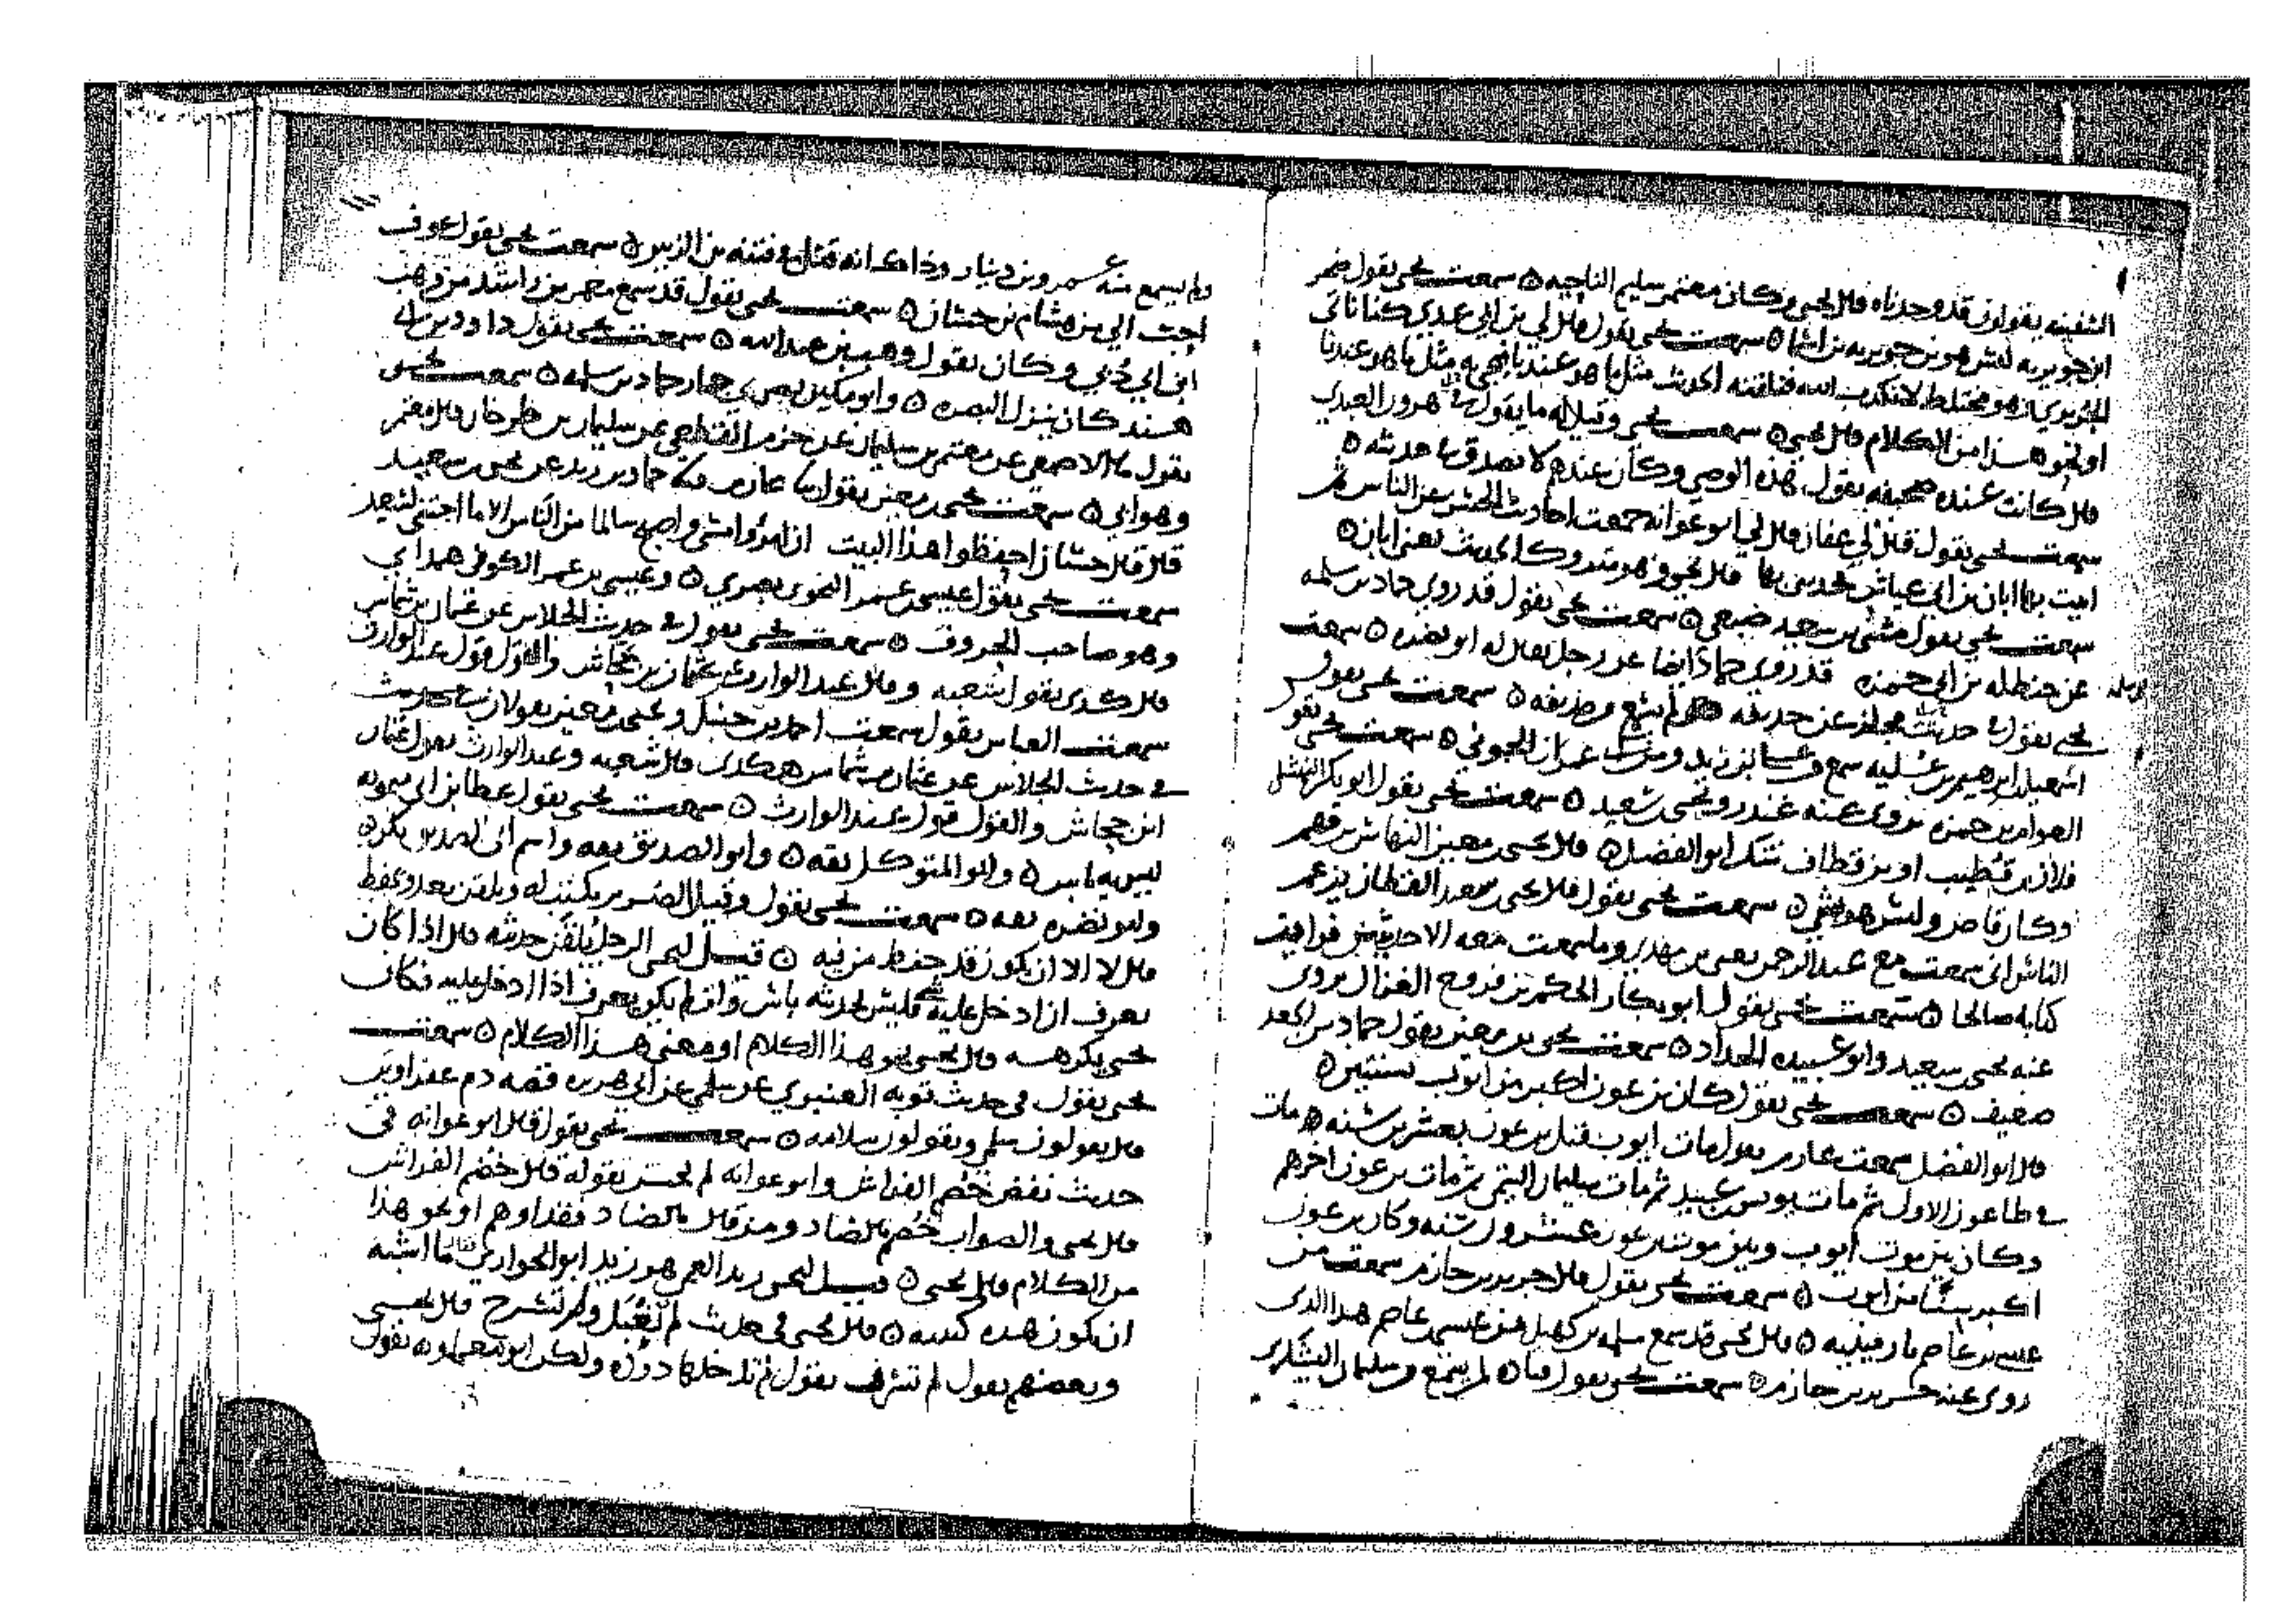 السفينه يقولون قد وجدناه قال يحيى وكان معتمر سليم الناحيه ٥ سمعت يحيى يقول
ابن جويريه ليس هو بن جويريه بن اسما ٥ سمعت يحيى يقول قال لي بن ابي عدي كنا ناتي
الجريري وهو مختلط لا نكذب الله فنلقنه الحديث مثل ما هو عندنا فيجي به مثل ما هو عندنا
او نحو هذا من الكلام قال يحيى ٥ سمعت يحيى وقيل له ما يقول في هرون العبدي
قال كانت عنده صحيفه يقول هذه الوصي وكان عندهم لا يصدق في حديثه ٥
سمعت يحيى يقول قال لي عفان قال لي ابو عوانه جمعت احاديث الحسن عن الناس ثم
اتيت بها ابان بن ابي عياش فحدثني بها قال يحيى وهو متروك الحديث يعني ابان ٥
سمعت يحيى يقول مثنى بن سعيد ضبعي ٥ سمعت يحيى يقول قد روى حماد بن سلمه
عن حنظله بن ابي حمزه قد روى حماد ايضا عن رجل يقال له ابو نضره ٥ سمعت
يحيى يقول في حديث مجلز عن حذيفه لم يسمع من حذيفه ٥ سمعت يحيى يقول
العوام بن حمزه يروي عنه غندر ويحيى سعيد ٥ سمعت يحيى يقول ابو بكر النهشلي
فلان بن قطيب او بن قطاف شك ابو الفضل ٥ قال يحيى بن معين النهاس بن قهم
وكان قاص وليس هو بشي ٥ سمعت يحيى يقول قال يحيى سعيد القطان يزعم
الناس اني سمعت مع عبد الرحمن يعني بن مهدي وما سمعت معه الا حديثين فرايت
كتابه صالحا ٥ سمعت يحيى يقول ابو بكار الحكم بن فروخ الغزال يروي
عنه يحيى سعيد وابو عبيده الحداد ٥ سمعت يحيى بن معين يقول حماد بن الجعد
ضعيف ٥ سمعت يحيى يقول كان بن عون اكبر من ايوب بسنتين ٥
قال ابو الفضل سمعت عارم يقول مات ايوب قبل بن عون بعشرين سنه مات
في طاعون الاول ثم مات يونس بن عبيد ثم مات سليمان التيمي ثم مات بن عون اخرهم
وكان بين موت ايوب وبين موت بن عون عشرون سنه وكان بن عون
اكبر سنا من ايوب ٥ سمعت يحيى يقول قال جرير بن حازم سمعت من
عيسى بن عاصم بارمينيه ٥ قال يحيى قد سمع سلمه بن كهيل من عيسى بن عاصم هذا الذي
روى عنه جرير بن حازم ٥ سمعت يحيى يقول قتاده لم يسمع من سليمان اليشكري
ولم يسمع منه عمرو بن دينار وذاك انه قتل في فتنه بن الزبير ٥ سمعت يحيى يقول عوف
احب الي من هشام بن حسان ٥ سمعت يحيى يقول قد سمع معمر بن راشد من وهب
ابن ابي دبي وكان يقول وهب بن عبد الله ٥ سمعت يحيى يقول داود بن ابي
هند كان ينزل البصره ٥ وابو مكين بصري جار حماد بن سلمه ٥ سمعت يحيى
يقول قال الاصمعي عن معتمر بن سليمان عن حزم القطعي عن سليمان بن طرخان قال معتمر
وهو ابي ٥ سمعت يحيى بن معين يقول ثنا عارم ثنا حماد بن زيد عن يحيى بن سعيد
قال قال حسان احفظوا هذا البيت ان امرؤا امسى واصبح سالما من الناس الا ما اجتنى لسعيد
سمعت يحيى يقول عيسى بن عمر النحوي بصري ٥ وعيسى بن عمر الكوفي همداني
وهو صاحب الحروف ٥ سمعت يحيى يقول في حديث الجلاس عن عثمان بن شماس
قال كذي يقول شعبه وقال عبد الوارث عثمان بن جحاش والقول قول عبد الوارث
سمعت العباس يقول سمعت احمد بن حنبل ويحيى بن معين يقولان في حديث
في حديث الجلاس عن عثمان بن شماس هكذي قال شعبه وعبد الوارث يقول عثمان
ابن جحاش والقول قول عبد الوارث ٥ سمعت يحيى يقول عطا بن ابي ميمونه
ليس به باس ٥ وابو المتوكل ثقه ٥ وابو الصديق ثقه واسم ابي الصديق بكر ٥
وابو نضره ثقه ٥ سمعت يحيى يقول وقيل الضرير يكتب له ويلقن بعد ويحفظ
قال لا الا ان يكون قد حفظ من فيه ٥ قيل ليحيى الرجل يلقن حديثه قال اذا كان
يعرف ان ادخل عليه شي فليس بحديثه باس وان لم يكن يعرف اذا ادخل عليه فكان
يحيى يكرهه قال يحيى نحو هذا الكلام او معنى هذا الكلام ٥ سمعت
يحيى يقول في حديث توبه العنبري عن سلمى عن ابي هريره قصه دم عفراوين
قال يقولون سلمى ويقولون سلامه ٥ سمعت يحيى يقول قال ابو عوانه في
حديث نغض خضم الفراش وابو عوانه لم يحسن يقوله قال خصم الفراش
قال يحيى والصواب خصم بالصاد ومن قال بالضاد فقد اوهم او نحو هذا
من الكلام قال يحيى ٥ قيل ليحيى زيد العمي هو زيد ابو الحواري فقال ما اشبه
ان يكون هذه كنيته ٥ قال يحيى في حديث لم تقبل ولم تسرح قال يحيى
وبعضهم يقول لم تسرف يقول لم تدخلها دوده ولكن ابو معاويه يقول